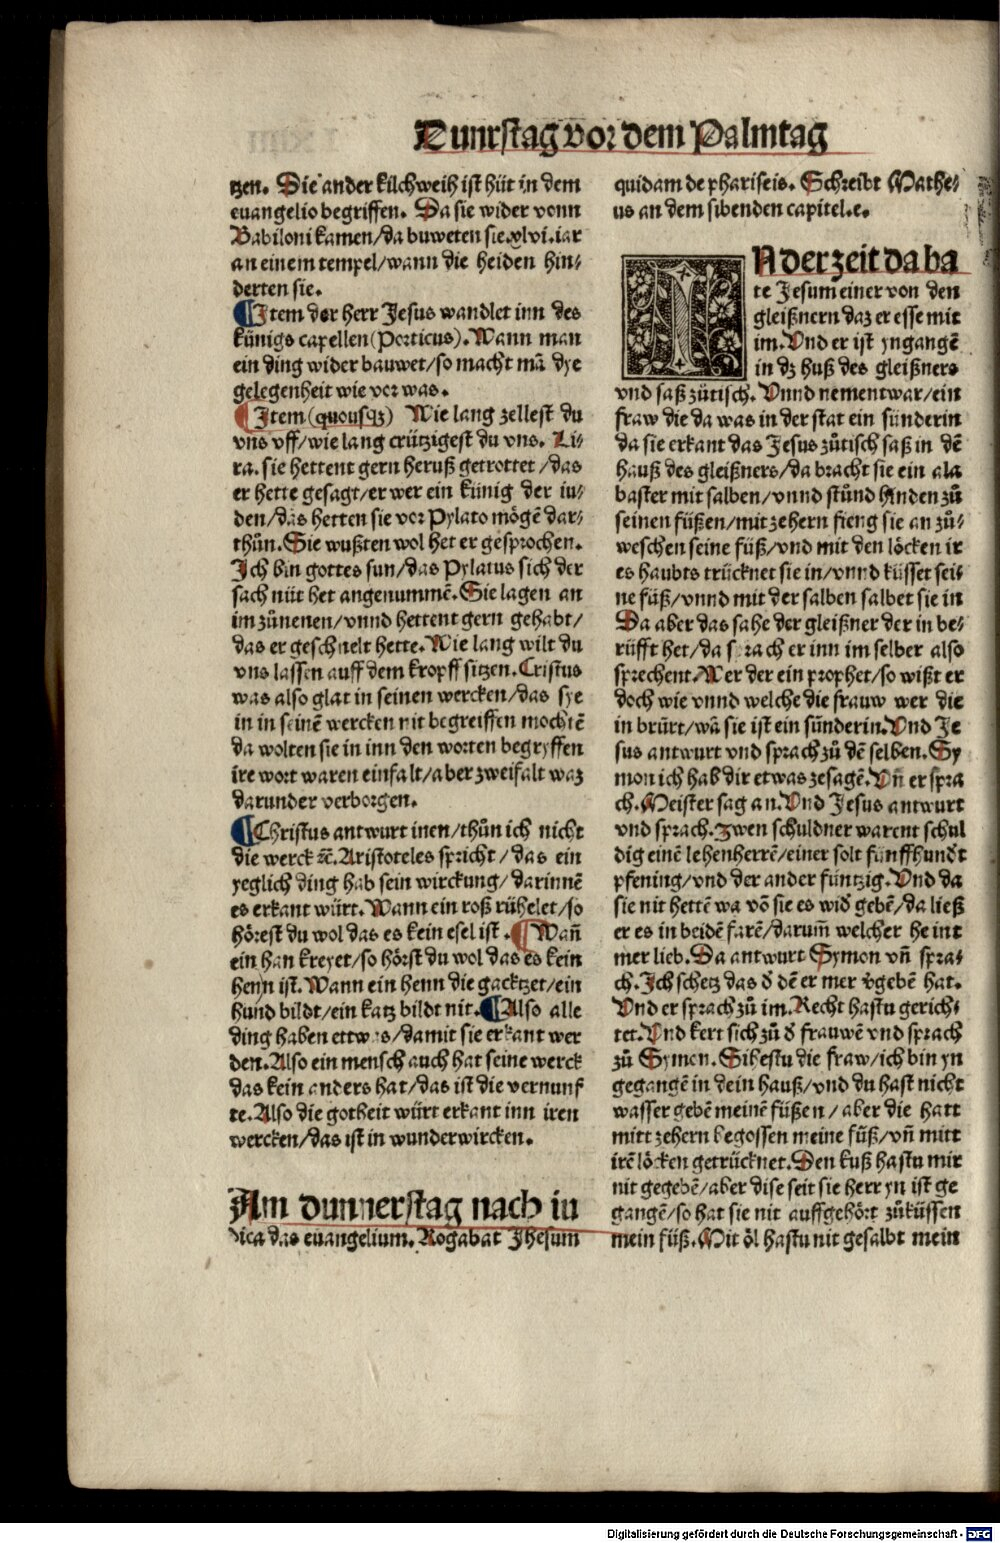 Dunrstag vor dem Palmtag
tzen. Die ander kilchweih ist hüt in dem
euangelio begriffen. Da sie wider vonn
Babiloni kamen/da buweten sie.xlvi.iar
an einem tempel/wann die heiden hin⸗
derten sie.
¶Item der herr Jesus wandlet inn des
künigs capellen(Porticus). Wann man
ein ding wider bauwet/so macht mā dye
gelegenheit wie vor was.
¶Item(quousqz) Wie lang zellest du
vns vff/wie lang crützigest du vns. Li⸗
ra. sie hettent gern heruß getrottet/das
er hette gesagt/er wer ein künig der iu⸗
den/das hetten sie vor Pylato mögē dar⸗
thůn. Sie wußten wol het er gesprochen.
Ich bin gottes sun/das Pylatus sich der
sach nüt het angenummē. Sie lagen an
im zůnenen/vnnd hettent gern gehabt/
das er geschnelt hette. Wie lang wilt du
vns lassen auff dem kropff sitzen. Cristus
was also glat in seinen wercken/das sye
in in seinē wercken nit begreiffen mochtē
da wolten sie in inn den worten begryffen
ire wort waren einfalt/aber zweifalt waz
darunder verborgen.
¶Christus antwurt inen/thůn ich nicht
die werck ꝛc̄. Aristoteles spricht/das ein
yeglich ding hab sein wirckung/darinnē
es erkant würt. Wann ein roß rühelet/so
hörest du wol das es kein esel ist. ¶Wañ
ein han kreyet/so hörst du wol das es kein
henn ist. Wann ein henn die gacktzet/ein
hund bildt/ein katz bildt nit. ¶Also alle
ding haben ettwas/damit sie erkant wer
den. Also ein mensch auch hat seine werck
das kein anders hat/das ist die vernunf
te. Also die gotheit würt erkant inn iren
wercken/das ist in wunderwircken.
Am dunnerstag nach iu
dica das euangelium. Rogabat Jhesum
quidam de phariseis. Schreibt Mathe⸗
us an dem sibenden capitel.e.
IN der zeit da ba
te Jesum einer von den
gleißnern daz er esse mit
im. Vnd er ist yngangē
in dz huß des gleißners
vnd saß zůtisch. Vnnd nement war/ein
fraw die da was in der stat ein sünderin
da sie erkant das Jesus zůtisch saß in dē
hauß des gleißners/da bracht sie ein ala
baster mit salben/vnnd stůnd hinden zů
seinen füßen/mit zehern fieng sie an zů⸗
weschen seine füß/vnd mit den löcken ir
es haubts trücknet sie in/vnnd küsset sei⸗
ne füß/vnnd mit der salben salbet sie in
Da aber das sahe der gleißner der in be⸗
rüfft het/da sprach er inn im selber also
sprechent. Wer der ein prophet/so wißt er
doch wie vnnd welche die frauw wer die
in brürt/wā sie ist ein sünderin. Vnd Je
sus antwurt vnd sprach zů dē selben. Sy
mon ich hab dir etwas zesagē. Vñ er spra
ch. Meister sag an. Vnd Jesus antwurt
vnd sprach. Zwen schuldner warent schul
dig einē lehenherrē/einer solt fünffhundt
pfening/vnd der ander füntzig. Vnd da
sie nit hettē wa vō sie es wid̄ gebē/da ließ
er es in beidē farē/darum̄ welcher he int
mer lieb. Da antwurt Symon vñ spra⸗
ch. Ich schetz das d̄ dē er mer v̄gebē hat.
Vnd er sprach zů im. Recht hastu gerich⸗
tet. Vnd kert sich zů d̄ frauwē vnd sprach
zů Symon. Sihestu die fraw/ich bin yn
gegangē in dein hauß/vnd du hast nicht
wasser gebē meinē füßen/aber die hatt
mitt zehern begossen meine füß/vñ mitt
irē löcken getrücknet. Den kuß hastu mir
nit gegebē/aber dise seit sie herr yn ist ge
gangē/so hat sie nit auffgehört zůküssen
mein füß. Mit öl hastu nit gesalbt mein
Digitalisierung gefördert durch die Deutsche Forschungsgemeinschaft - DFG